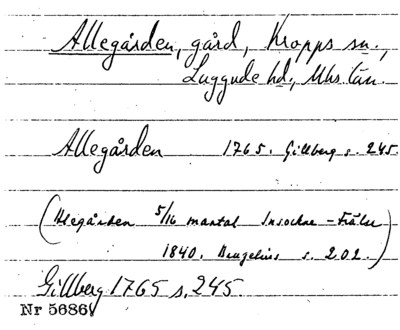 Allegården, gård, Kropps sn.,
Luggude hd., Mhs. län.
Allegården 1765. Gillberg s. 245.
(Alegården 5/16 mantal Insockne-Frälse
1840. s. 202.)
Gillberg 1765 s. 245.
Nr 5686